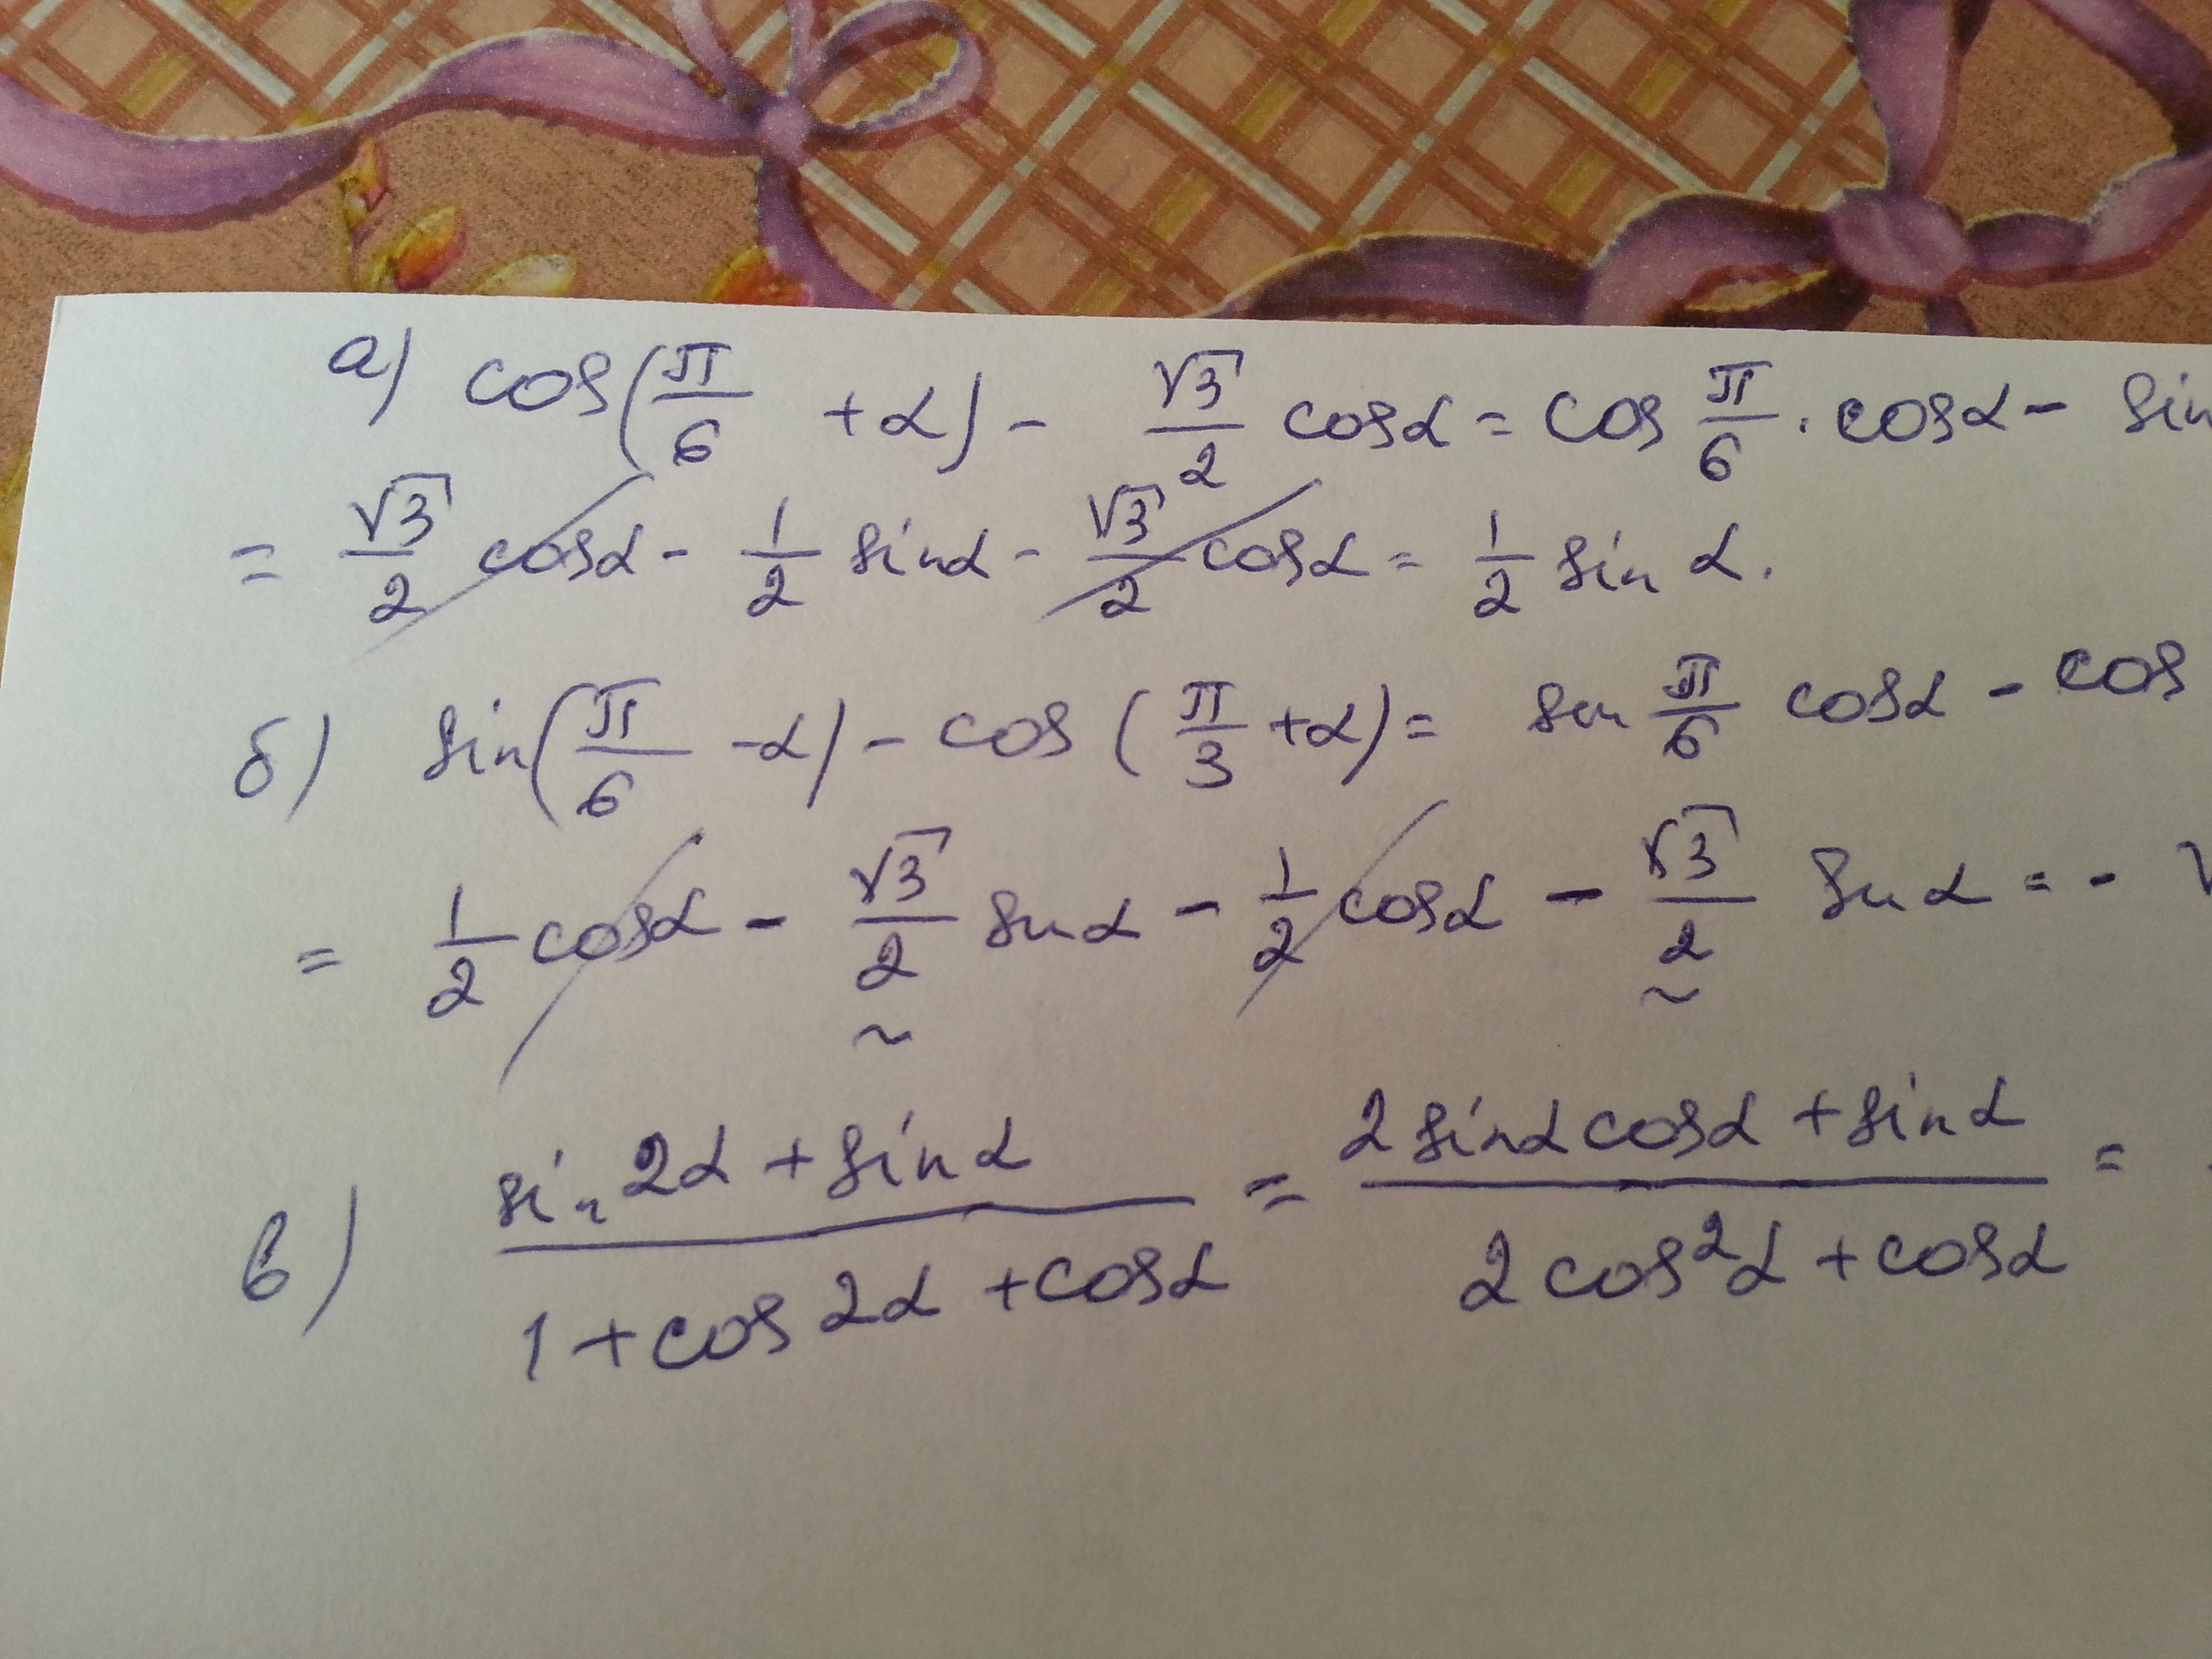 а) cos(π/6 + α) - √3/2 cosα = cos π/6 · cosα - sin
= √3/2 cosα - 1/2 sinα - √3/2 cosα = 1/2 sin α.
б) sin(π/6 - α) - cos (π/3 + α) = sin π/6 cosα - cos
= 1/2 cosα - √3/2 sin α - 1/2 cosα - √3/2 sin α = - √
в) (sin 2α + sin α)/(1 + cos 2α + cosα) = (2 sinα cosα + sin α)/(2 cos²α + cosα) =